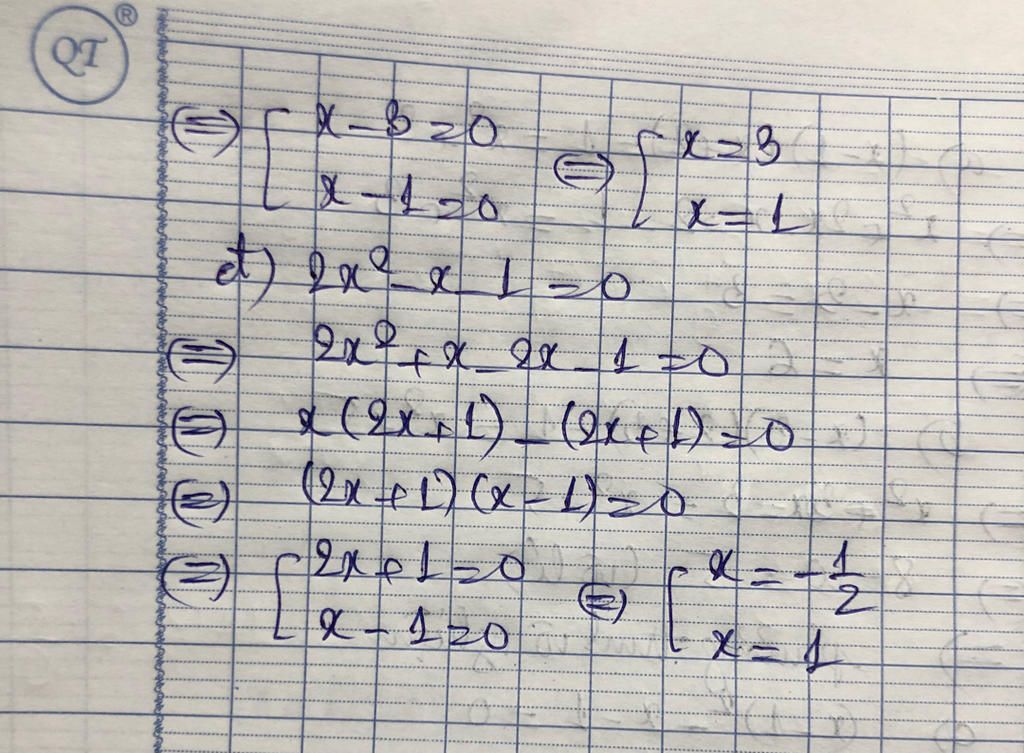 QT ®
⇔ [ x - 3 = 0 ⇔ [ x = 3
x - 1 = 0 x = 1
d) 2x² - x - 1 = 0
⇔ 2x² + x - 2x - 1 = 0
⇔ x(2x + 1) - (2x + 1) = 0
⇔ (2x + 1)(x - 1) = 0
⇔ [ 2x + 1 = 0 ⇔ [ x = -1/2
x - 1 = 0 x = 1